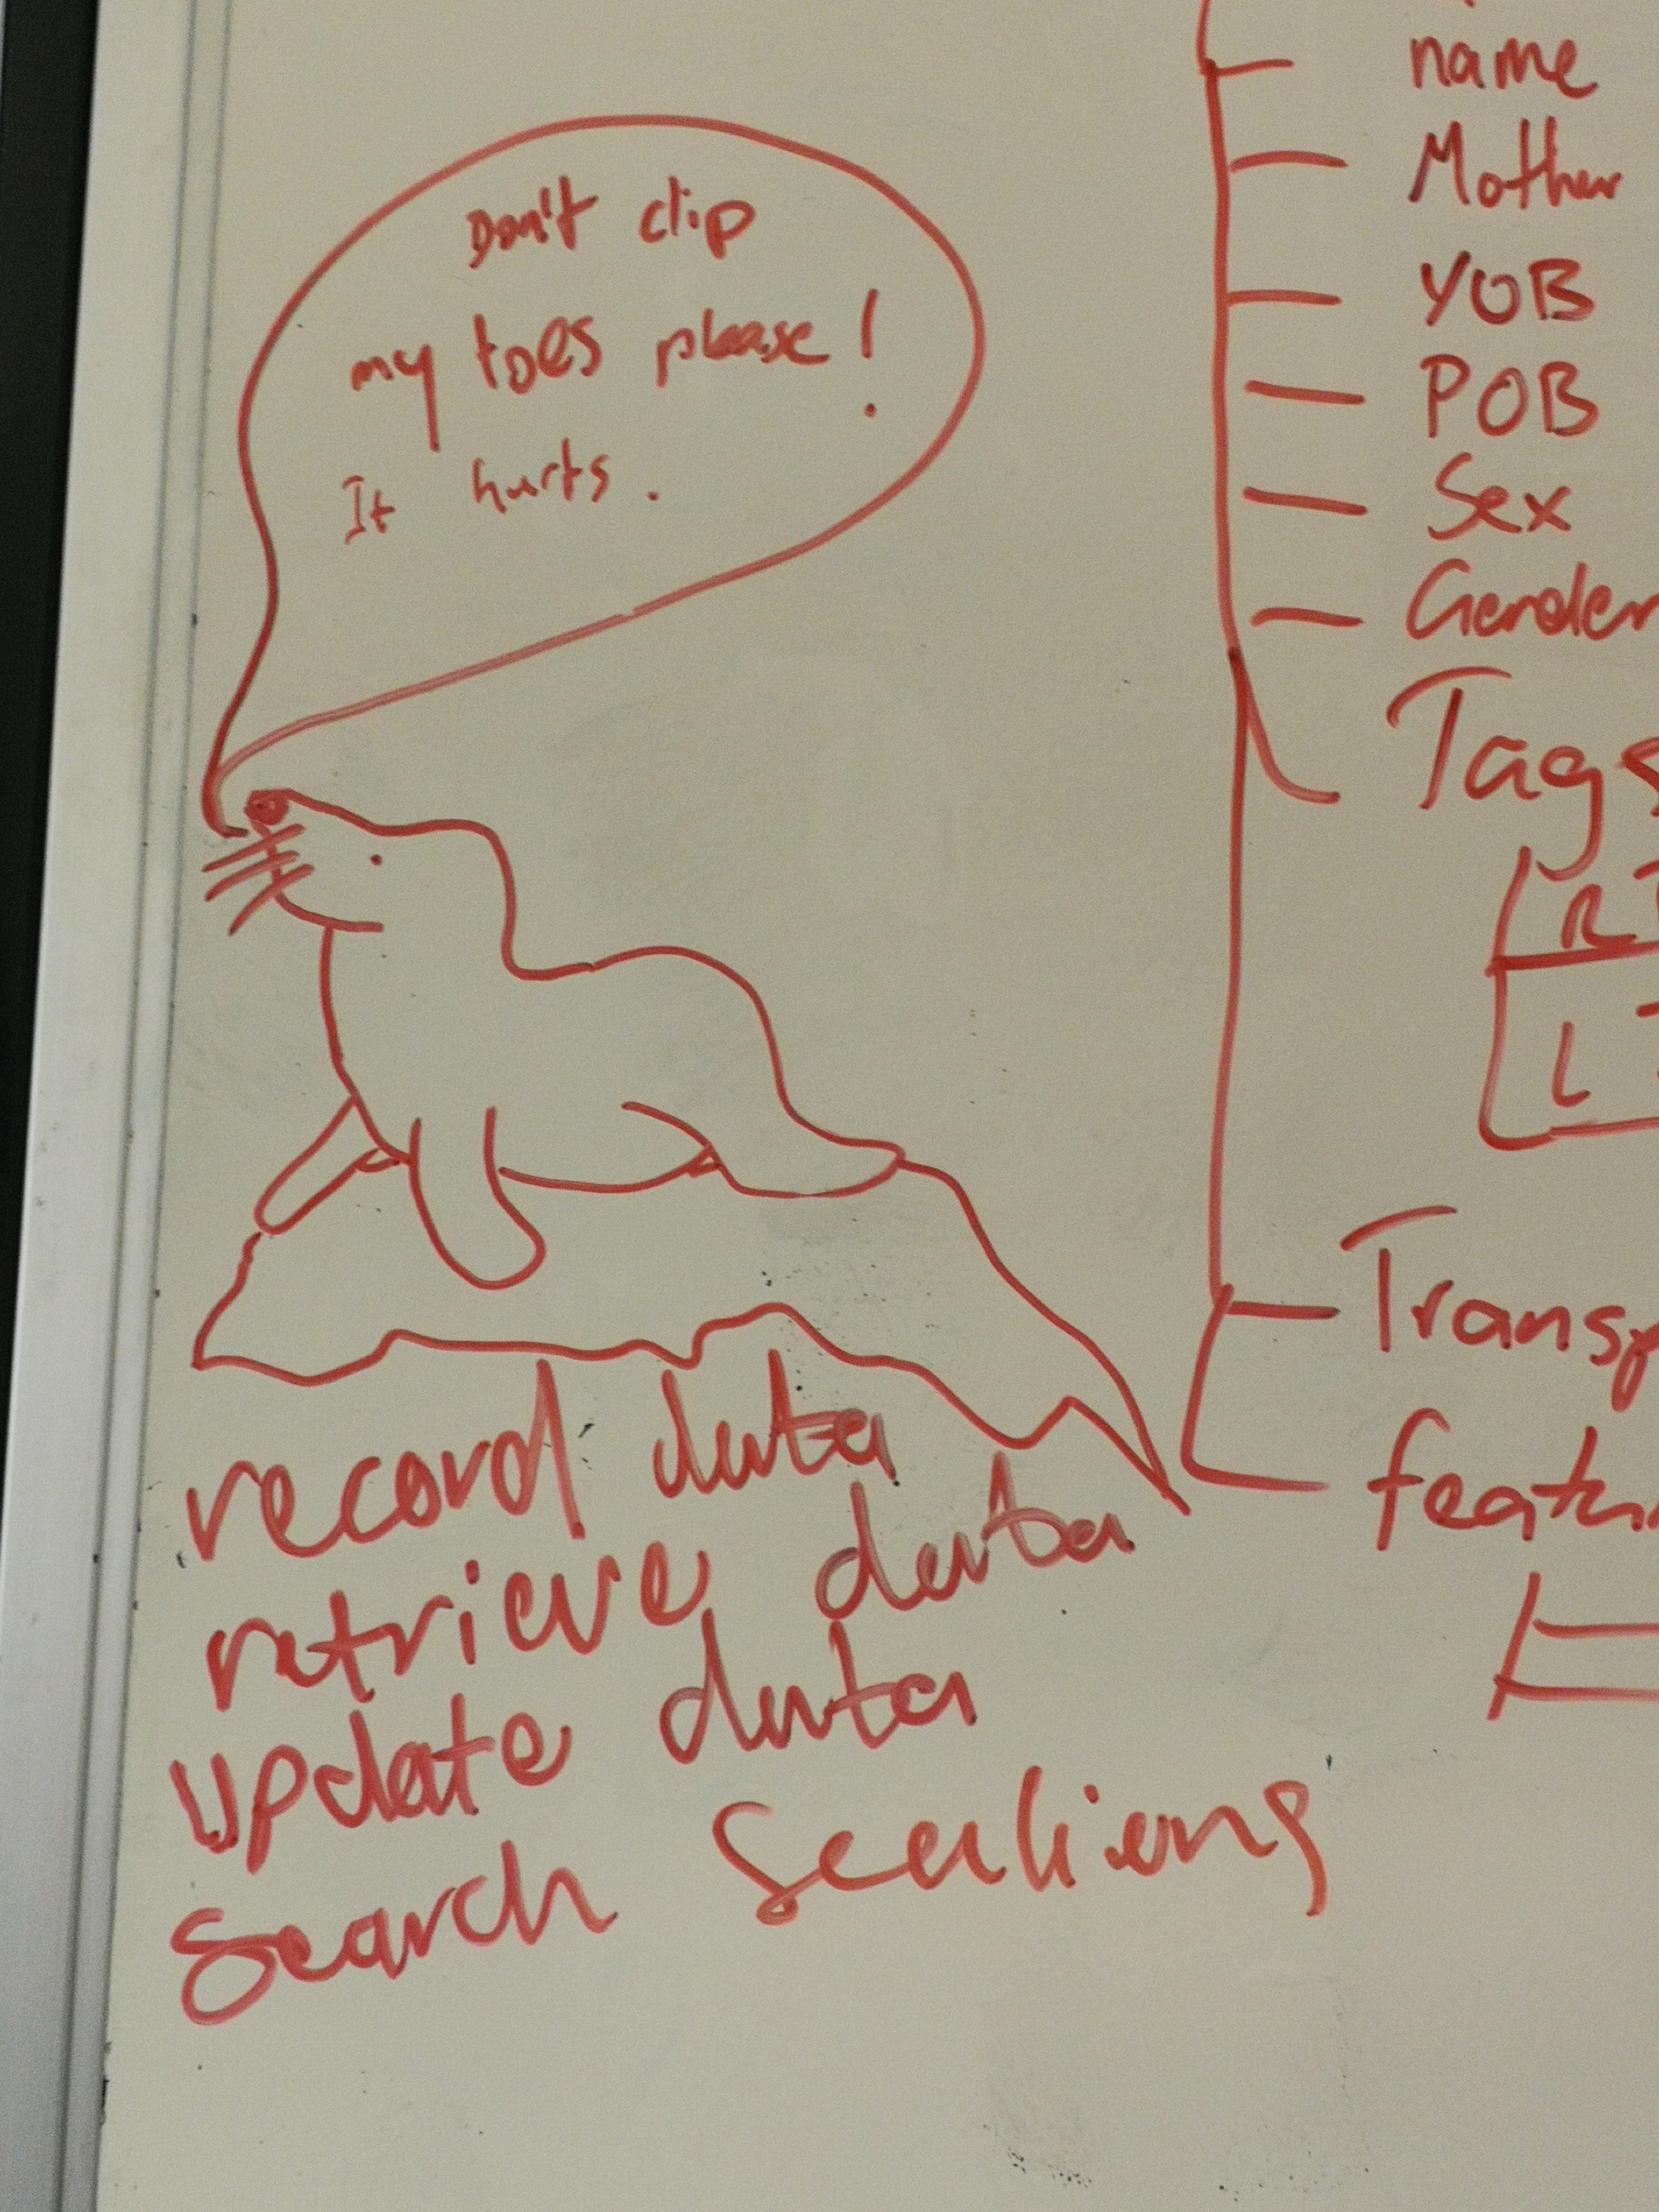 Don't clip
my toes please!
It hurts.
record data
retrieve data
update data
search Sealions
name
Mother
YOB
POB
Sex
Gender
Tags
R
L
Transp
featu